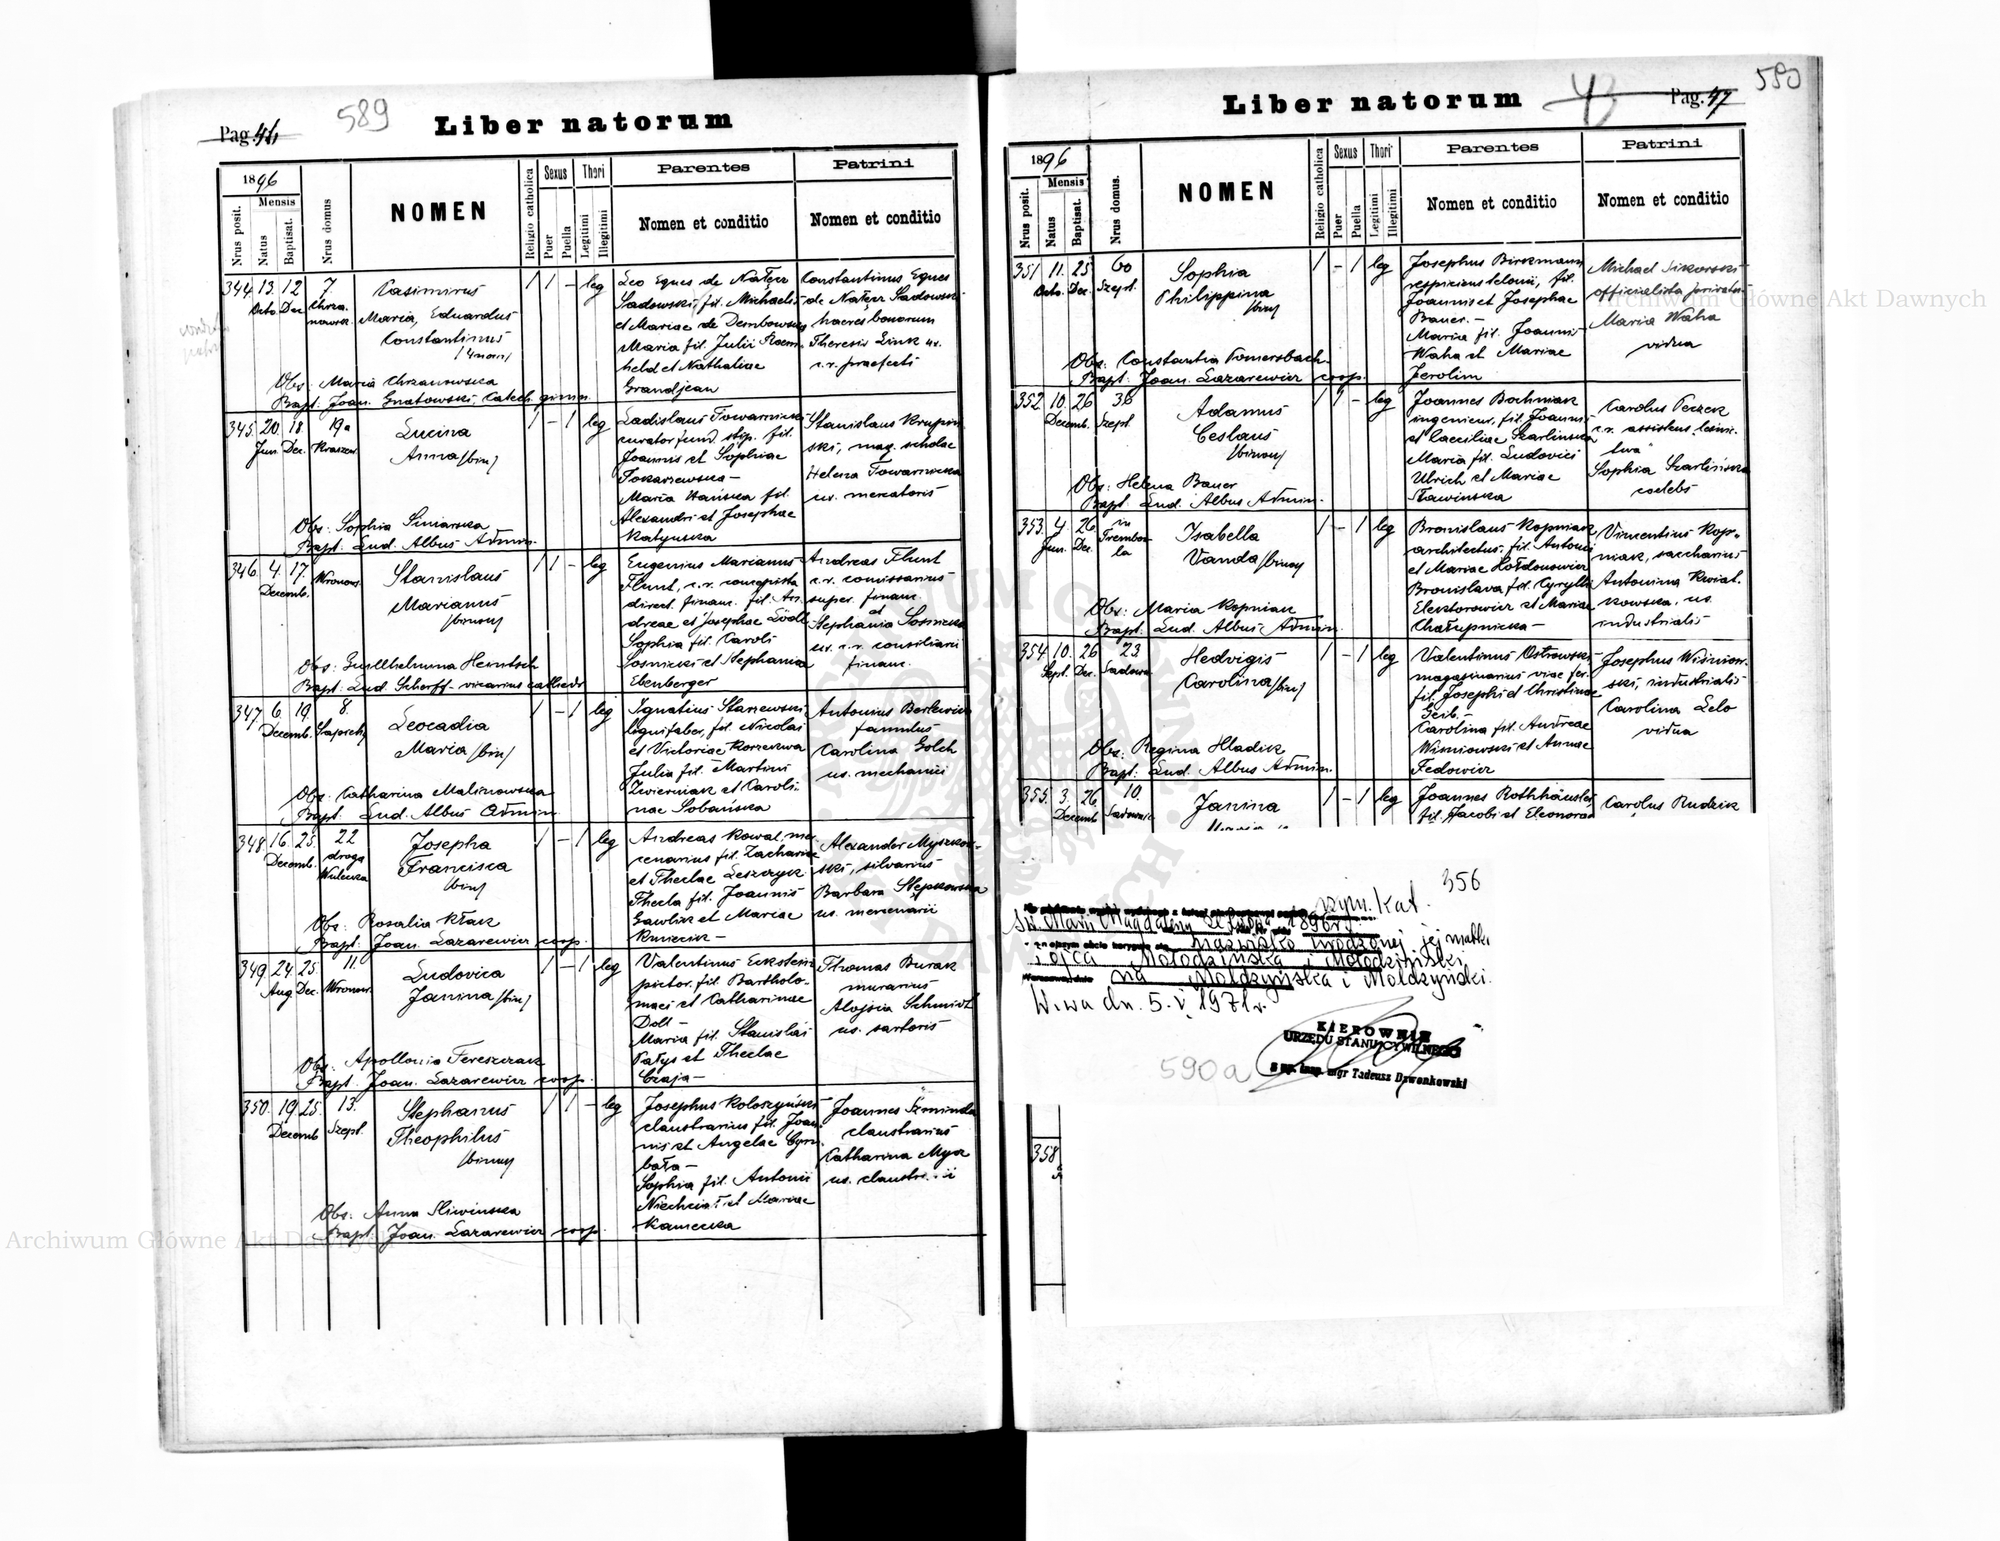 589
Pag. 46
Liber natorum
1896
Mensis
Nrus posit.
Natus
Baptisat.
Nrus domus
NOMEN
Religio catholica
Sexus
Puer
Puella
Thori
Legitimi
Illegitimi
Parentes
Nomen et conditio
Patrini
Nomen et conditio
344. 13. 12 7.
Octo. Dec.
Casimirus
Maria, Eduardus
Constantinus
1 1 - leg
Leo Eques de Nałęcz
Sadowski, fil. Michaelis
et Mariae de Dembowska
Maria fil. Julii
held et Nathaliae
Grandjean
Constantinus Eques
de Nałęcz Sadowski
haeres bonorum
Theresia Link ux.
c.r. praefecti
Obs: Maria Chrzanowska
Bapt: Joan. Gnatowski, Catech. gimn.
345. 20. 18 19a
Jun. Dec. Kraszew.
Lucina
Anna /bin/
1 - 1 leg
Ladislaus Towarnicki
curator fund. stip. fil.
Joannis et Sophiae
Tokarzewska -
Maria fil.
Alexandri et Josephae
Katyńska
Stanislaus Krupiń
ski, mag. scholae
Helena Towarnicka
ux. mercatoris
Obs: Sophia Siniarska
Bapt: Lud. Albus Admin.
346. 4. 17. Wronow.
Decemb.
Stanislaus
Marianus
/binom/
1 1 - leg
Eugenius Marianus
Flunt, c.r. concipista
direct. financ. fil. An-
dreae et Josephae
Sophia fil. Caroli
Sosnicki et Stephania
Ebenberger
Andreas Flunt
c.r. comissarius
super. financ.
et
Stephania Sosnicka
ux. c.r. consiliarii
financ.
Obs: Guilhelmina Hentsch
Bapt: Lud. Scherff. vicarius cathedr
347. 6. 19. 8.
Decemb.
Leocadia
Maria /bin/
1 - 1 leg
Ignatius Starzewski
lignifaber, fil. Nicolai
et Victoriae Korzekwa
Julia fil. Martini
Zwierniak et Caroli-
nae Sobańska
Antonius
famulus
Carolina Golch
ux. mechanici
Obs: Catharina Malinowska
Bapt: Lud. Albus Admin
348. 16. 25. 22
Decemb. droga
Wulecka
Josepha
Francisca
/bin/
1 - 1 leg
Andreas Kowal, mer-
cenarius fil. Zachariae
et Theclae Leszczyk
Thecla fil. Joannis
Gawlik et Mariae
Kmiecik -
Alexander Myszkow-
ski, silvarius
Barbara Stepkowska
ux. mercenarii
Obs: Rosalia Kłak
Bapt: Joan. Lazarewicz coop.
349. 24. 25. 11.
Aug. Dec. Wronow.
Ludovica
Janina /bin/
1 - 1 leg
Valentinus Eckstein
pictor. fil. Bartholo-
maei et Catharinae
Doll -
Maria fil. Stanislai
Pałys et Theclae
Czaja -
Thomas Burak
murarius
Aloysia Schmidt
ux. sartoris
Obs: Apollonia Tereszczak
Bapt: Joan. Lazarewicz coop.
350. 19. 25. 13.
Decemb Szept.
Stephanus
Theophilus
/binom/
1 1 - leg
Josephus Koloszyński
claustrarius fil. Joan-
nis et Angelae Cym-
bała -
Sophia fil. Antonii
et Mariae
Kamecka
Joannes Szminda
claustrarius
Catharina Mysz
ux. claustr.
Obs: Anna Sliwinska
Bapt: Joan. Lazarewicz coop.
590
Liber natorum
43
Pag. 47
1896
Mensis
Nrus posit.
Natus
Baptisat.
Nrus domus.
NOMEN
Religio catholica
Sexus
Puer
Puella
Thori
Legitimi
Illegitimi
Parentes
Nomen et conditio
Patrini
Nomen et conditio
351 11. 25 60
Octo. Dec. Szept.
Sophia
Philippina
/bin/
1 - 1 leg
Josephus Birkmann
respiciens telonii, fil.
Joannis et Josephae
Bauer. -
Maria fil. Joannis
Waha et Mariae
Jerolim
Michael Sikorski
officialista privatus
Maria Waha
vidua
Obs: Constantia Pomersbach
Bapt: Joan. Lazarewicz coop.
352. 10. 26 36
Decemb. Szept.
Adamus
Ceslaus
/binom/
1 1 - leg
Joannes Bochniak
ingenieur, fil. Joannis
et Caeciliae Szarlinska
Maria fil. Ludovici
Ulrich et Mariae
Sławinska
Carolus Peczek
c.r. assistens
Sophia Szarlińska
caelebs
Obs: Helena Bauer
Bapt: Lud. Albus Admin.
353. 4. 26 in
Jun. Dec. Trembow
la
Isabella
Vanda /binom/
1 - 1 leg
Bronislaus Kopniak
architectus, fil. Antonii
et Mariae Hołdonowicz
Bronislava fil. Cyrylli
Elektorowicz et Mariae
Chałupnicka -
Vincentius Kop-
niak, saccharius
Antonina Kwiat-
kowska, ux.
industrialis
Obs: Maria Kopniak
Bapt: Lud. Albus Admin.
354. 10. 26 23
Sept. Dec. Sadown.
Hedvigis
Carolina /bin/
1 - 1 leg
Valentinus Ostrowski
magazinarius viae fer.
fil. Josephi et Christinae
Geib. -
Carolina fil. Andreae
Wisniowski et Annae
Fedowicz
Josephus Wiśniow-
ski, industrialis
Carolina Lelo
vidua
Obs: Regina Hladik
Bapt: Lud. Albus Admin.
355. 3. 26. 10.
Decemb Sadownic
Janina
1 - 1 leg
Joannes Rothhäusler,
fil. Jacobi et Eleonorae
Carolus Rudzik
356
rzym. kat.
św. Marii Magdaleny 1896 r.
nazwisko urodzonej jej matki
i ojca Mołodzińska i Mołodziński
na Mołdzyńska i Mołdzyński.
W.wa dn. 5. V 1971 r.
KIEROWNIK
URZĘDU STANU CYWILNEGO
mgr Tadeusz Dzwonkowski
590a
358
Archiwum Główne Akt Dawnych
Archiwum Główne Akt Dawnych